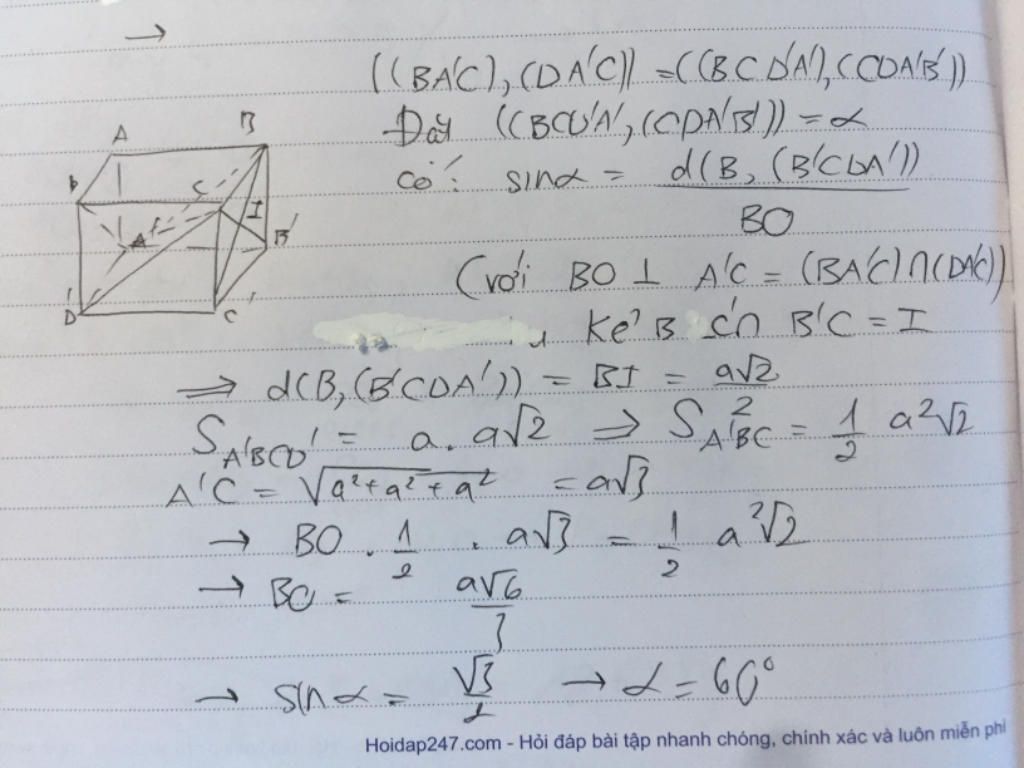 →
((BA'C), (DA'C)) = ((BCD'A'), (CDA'B'))
Đặt ((BCD'A', (CDA'B')) = α
A
B
có: sinα = d(B, (B'CDA'))
BO
D
C
I
A'
B'
(với BO ⊥ A'C = (BA'C) ∩ (DA'C))
D'
C'
Kẻ B C'∩ B'C = I
⇒ d(B, (B'CDA')) = BI = a√2
2
S A'BCD' = a . a√2 ⇒ S A'BC = 1/2 a²√2
A'C = √a²+a²+a² = a√3
→ BO . 1/2 . a√3 = 1/2 a²√2
→ BO = a√6
3
→ sin α = √3/2 → α = 60°
Hoidap247.com - Hỏi đáp bài tập nhanh chóng, chính xác và luôn miễn phí